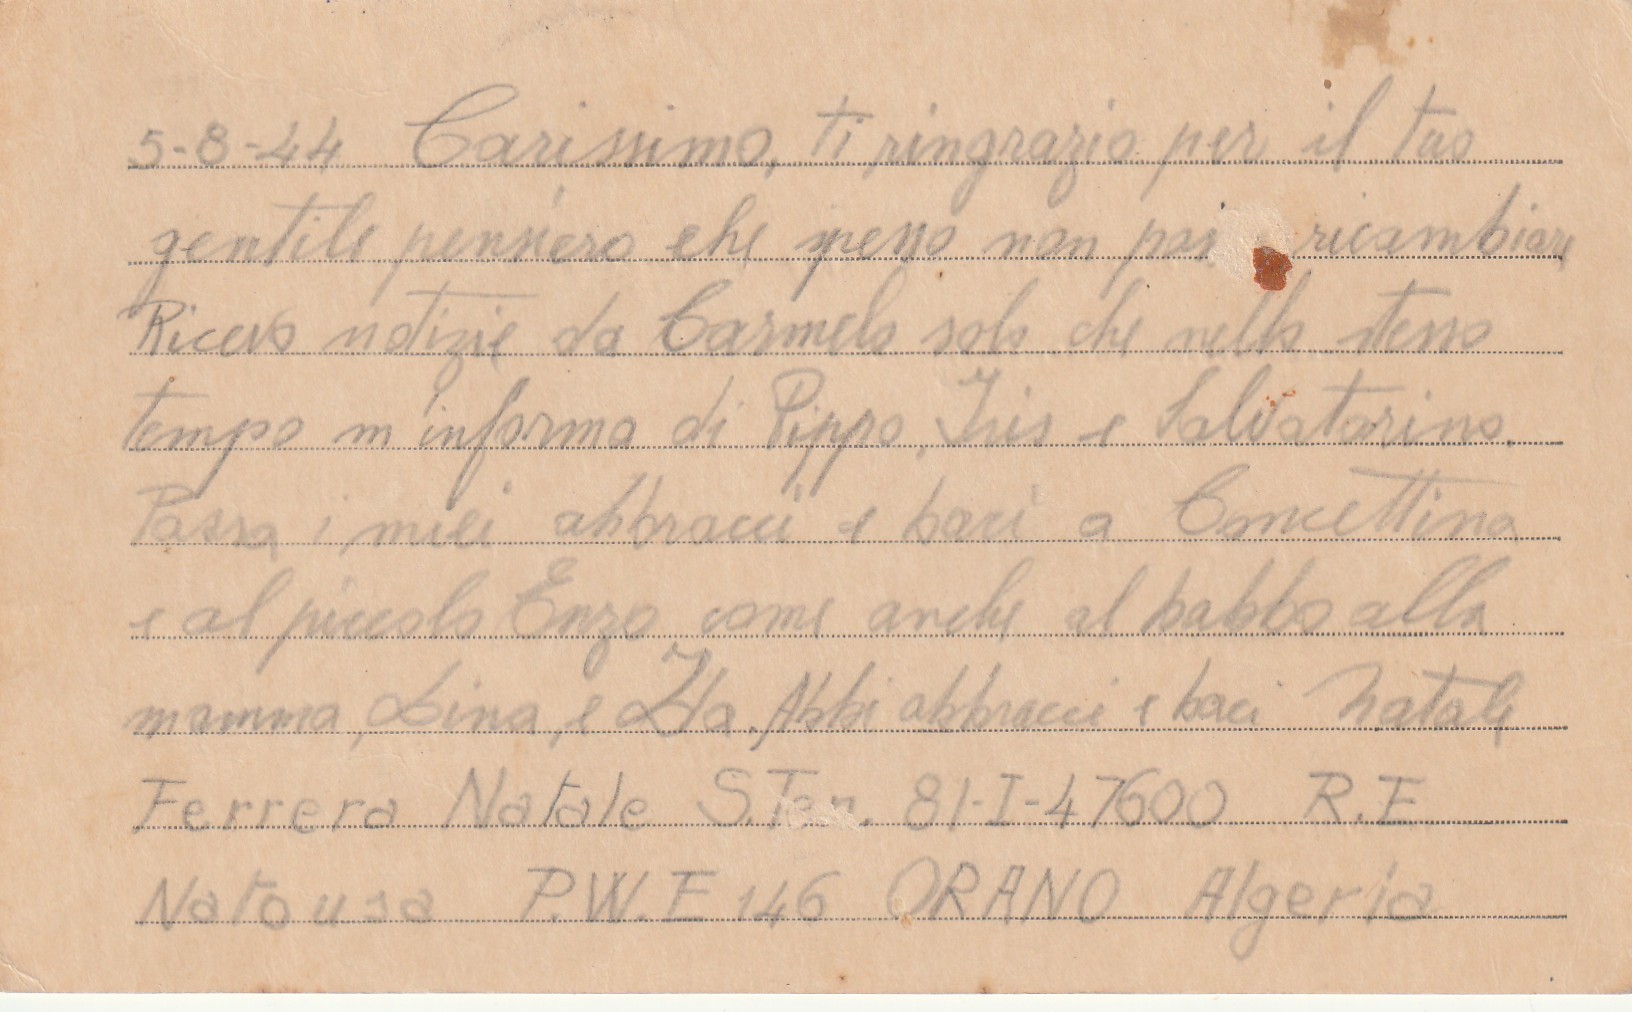 5-8-44 Carissimo, ti ringrazio per il tuo
gentile pensiero che spesso non pos ricambiare
Ricevo notizie da Carmelo solo che nello stesso
tempo m'informa di Pippo, Iris e Salvatorino.
Passa i miei abbracci e baci a Concettina
e al piccolo Enzo come anche al babbo alla
mamma, Lina, e Ida. Abbi abbracci e baci Natale
Ferrera Natale S.Ten. 81-I-47600 R.E
Natousa P.W.E 146 ORANO Algeria